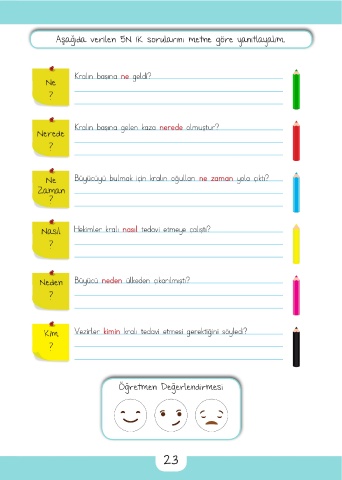 Aşağıda verilen 5N 1K sorularını metne göre yanıtlayalım.
Ne
?
Kralın başına ne geldi?
Nerede
?
Kralın başına gelen kaza nerede olmuştur?
Ne
Zaman
?
Büyücüyü bulmak için kralın oğulları ne zaman yola çıktı?
Nasıl
?
Hekimler kralı nasıl tedavi etmeye çalıştı?
Neden
?
Büyücü neden ülkeden çıkarılmıştı?
Kim
?
Vezirler kimin kralı tedavi etmesi gerektiğini söyledi?
Öğretmen Değerlendirmesi
23